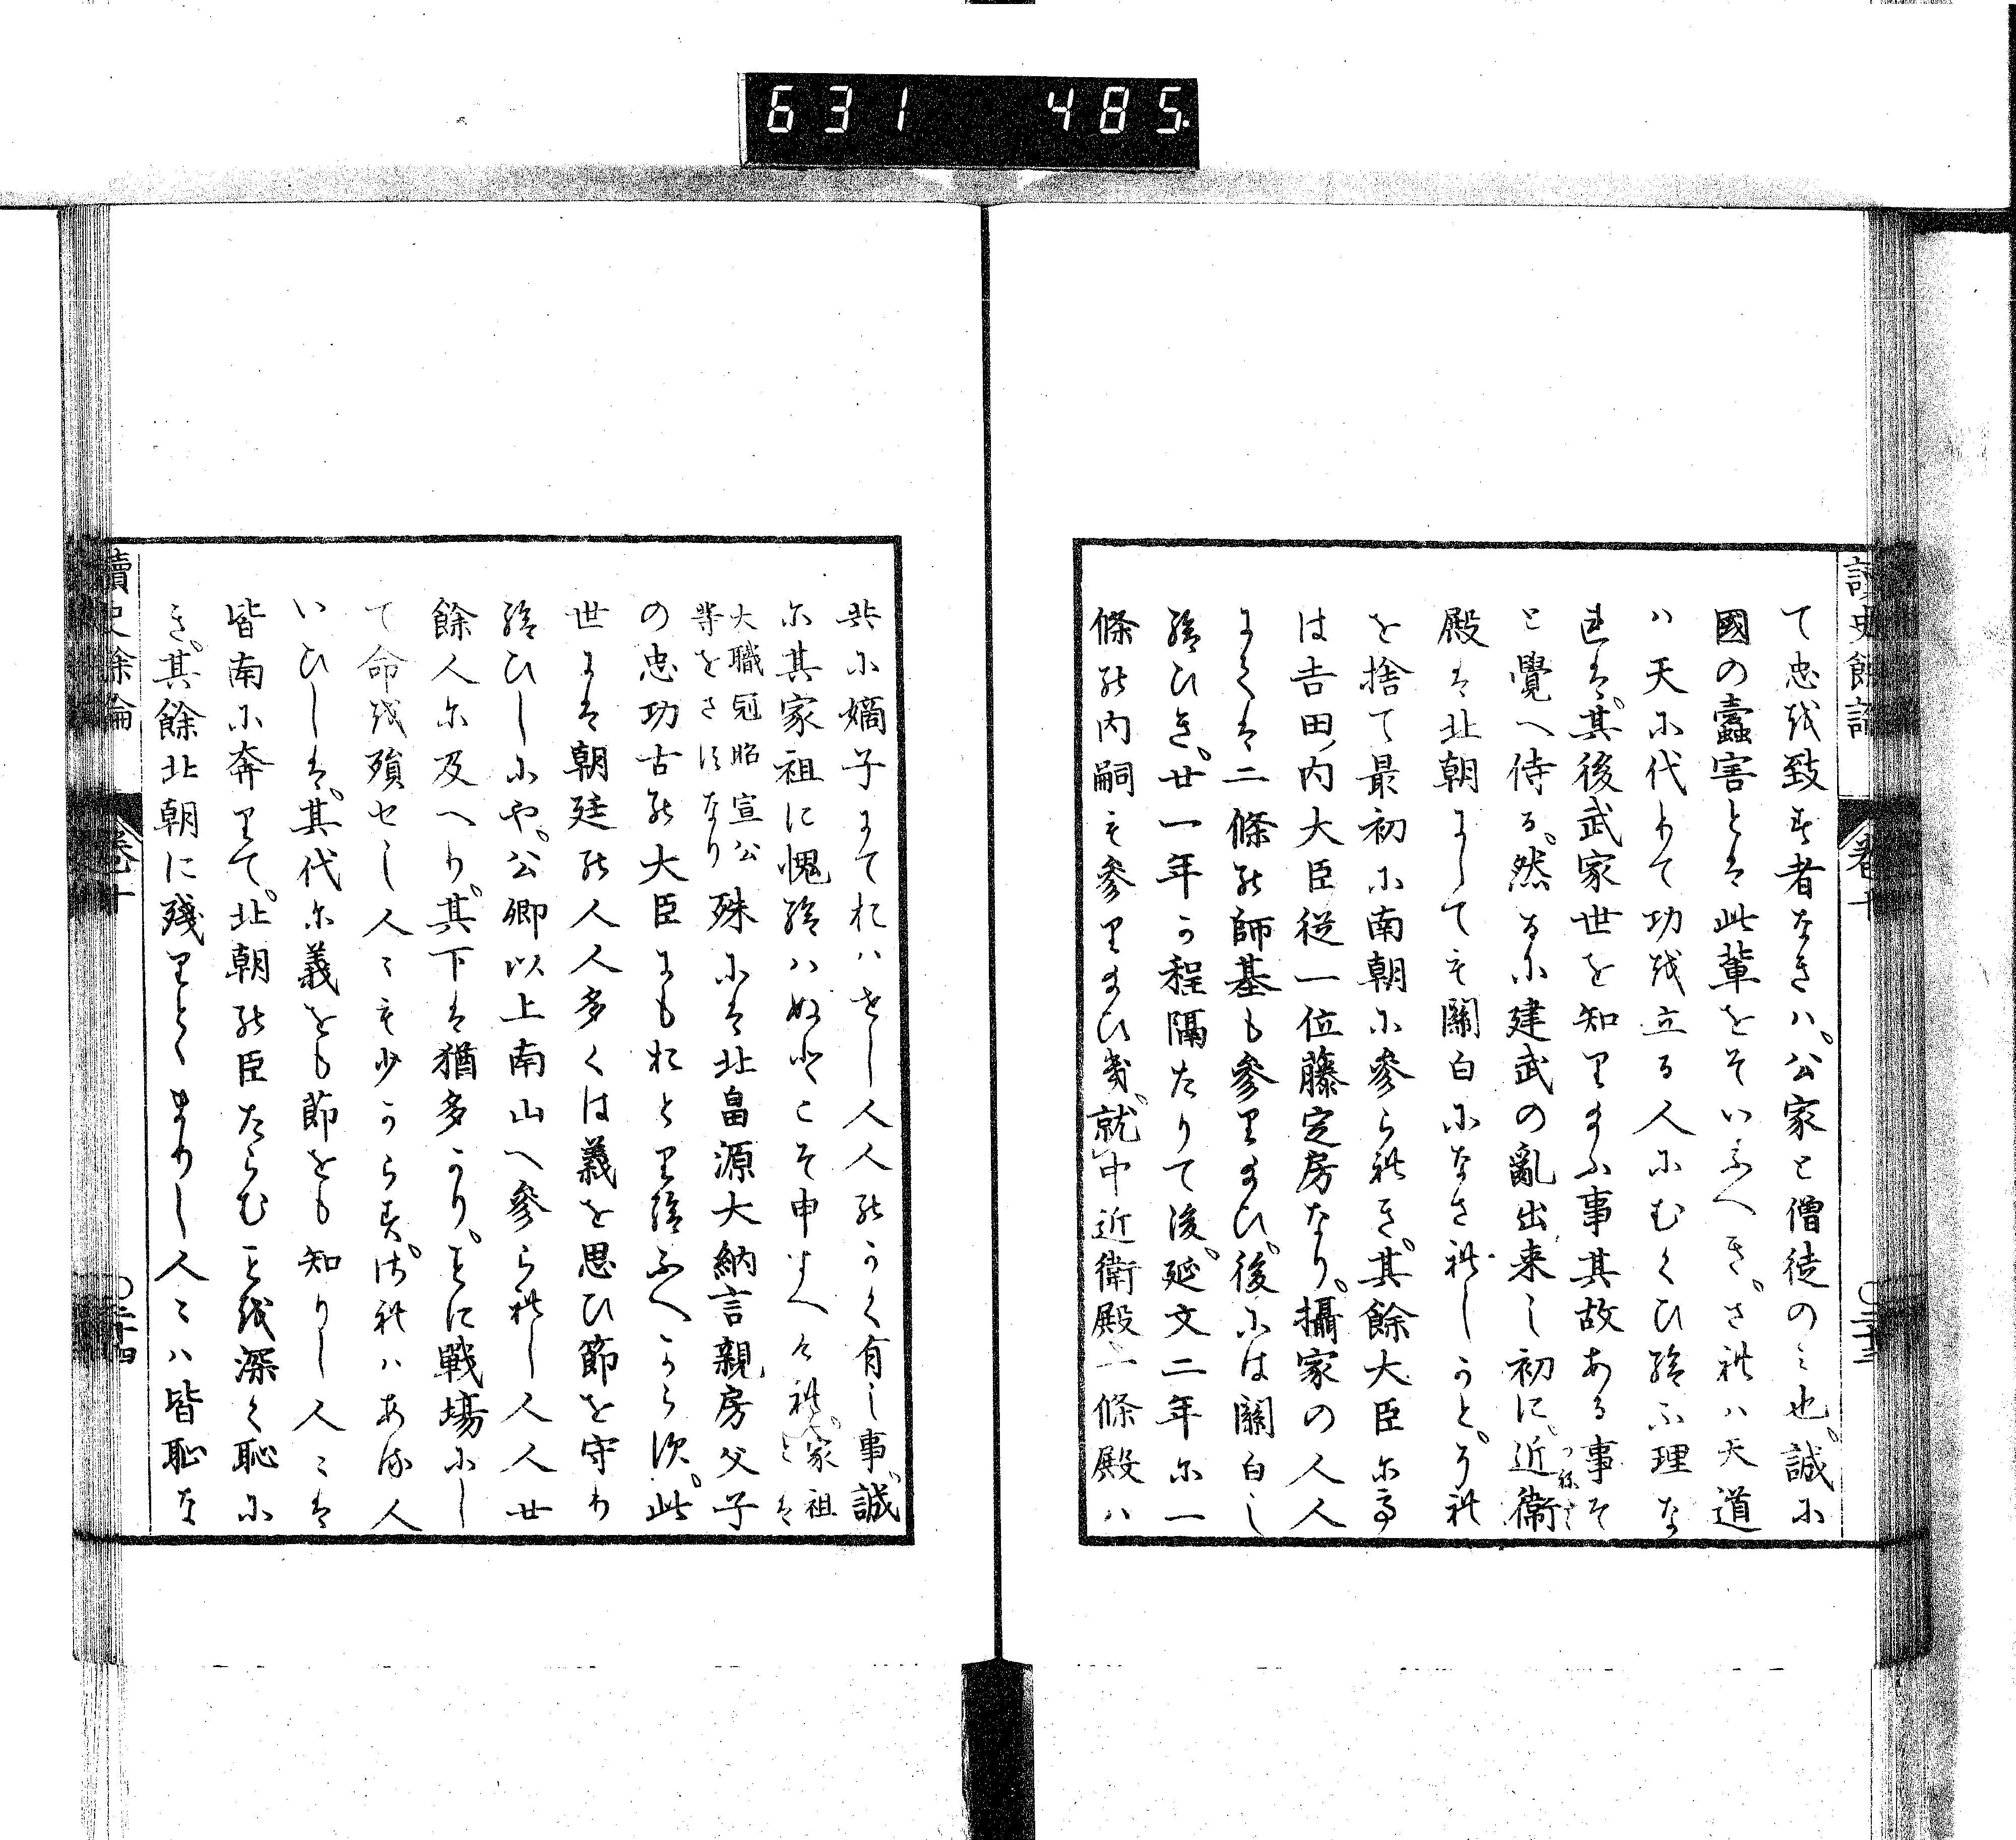 631 485
讀史餘論 卷十 〇三十三
て忠を致す者なきハ公家と僧徒のミ也誠に
國の蠹害とは此輩をそいふへきされハ天道
ハ天に代りて功を立る人にむくひ給ふ理な
れは其後武家世を知り給ふ事其故ある事そ
と覺へ侍る然るに建武の亂出来し初に近衞つねたゝ
殿は北朝にしても關白になされしかとそれ
を捨て最初に南朝に參られき其餘大臣には
は吉田内大臣従一位藤定房なり攝家の人人
にては二條の師基も參り給ひ後には關白し
給ひき廿一年の程隔たりて後延文二年に一
條の内嗣も參り給ひき就中近衞殿一條殿ハ
共に嫡子にておハせし人人のかく有し事誠
に其家祖に愧給ハぬとこそ申すへけれ家祖とは
大職冠昭宣公等をさすなり殊には北畠源大納言親房父子
の忠功古の大臣にもおとり給ふへからす此
世には朝廷の人人多くは義を思ひ節を守り
給ひしにや公卿以上南山へ參られし人人廿
餘人に及へり其下は猶多かり其に戰場にし
て命を殞セし人〻も少からすされハある人
いひしは其代に義をも節をも知りし人〻は
皆南に奔りて北朝の臣たらむことを深く恥に
き其餘北朝に殘りとゝまりし人〻ハ皆恥な
讀史餘論 卷十 〇三十四